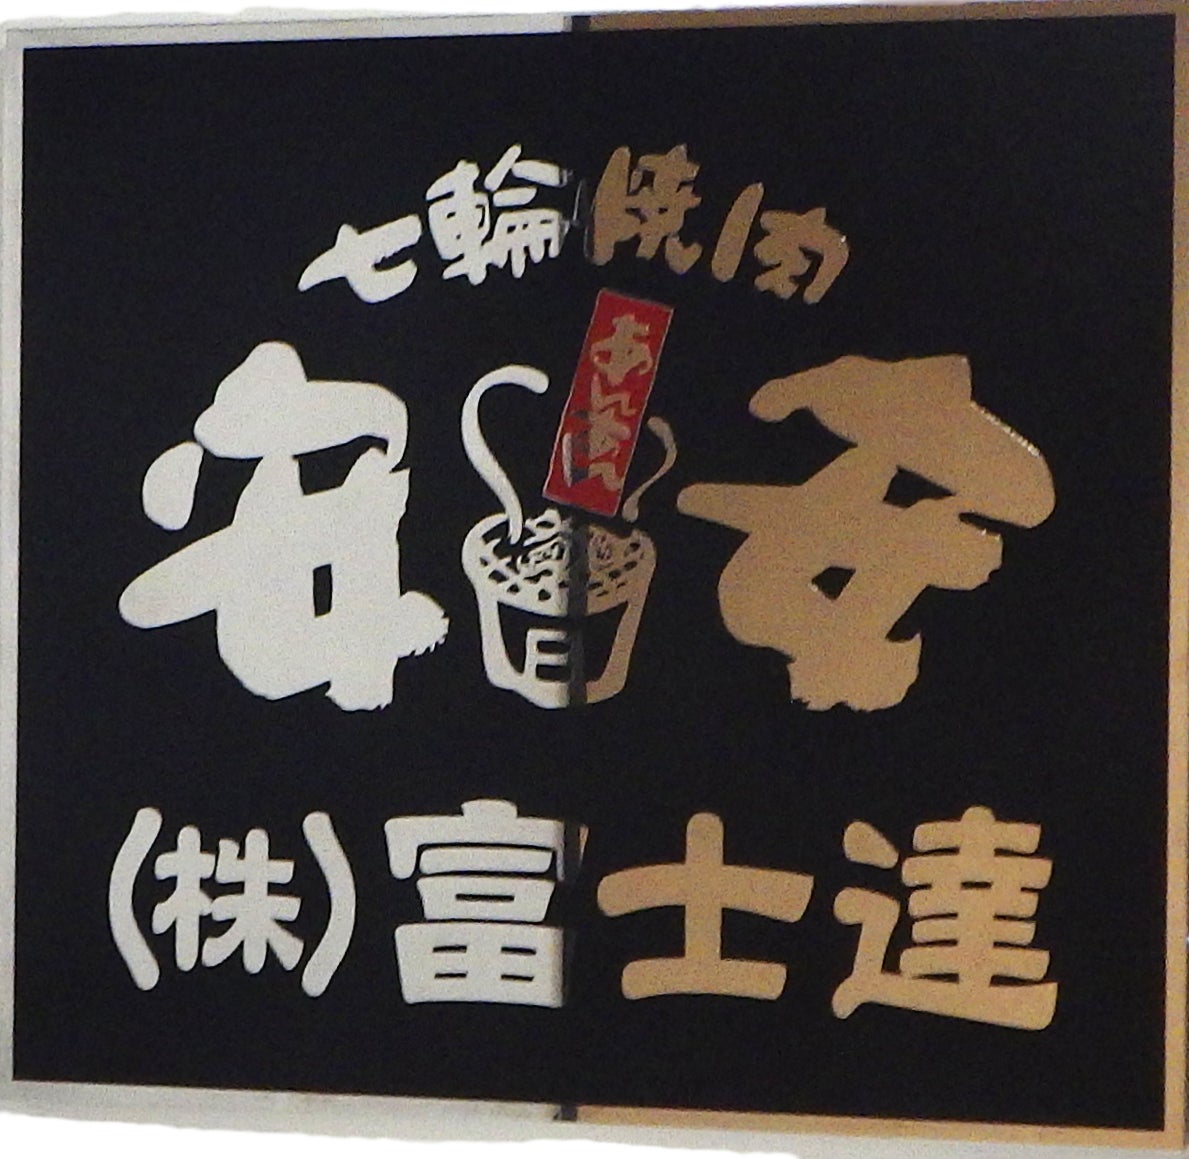 七輪焼肉
安安
あんあん
(株)富士達